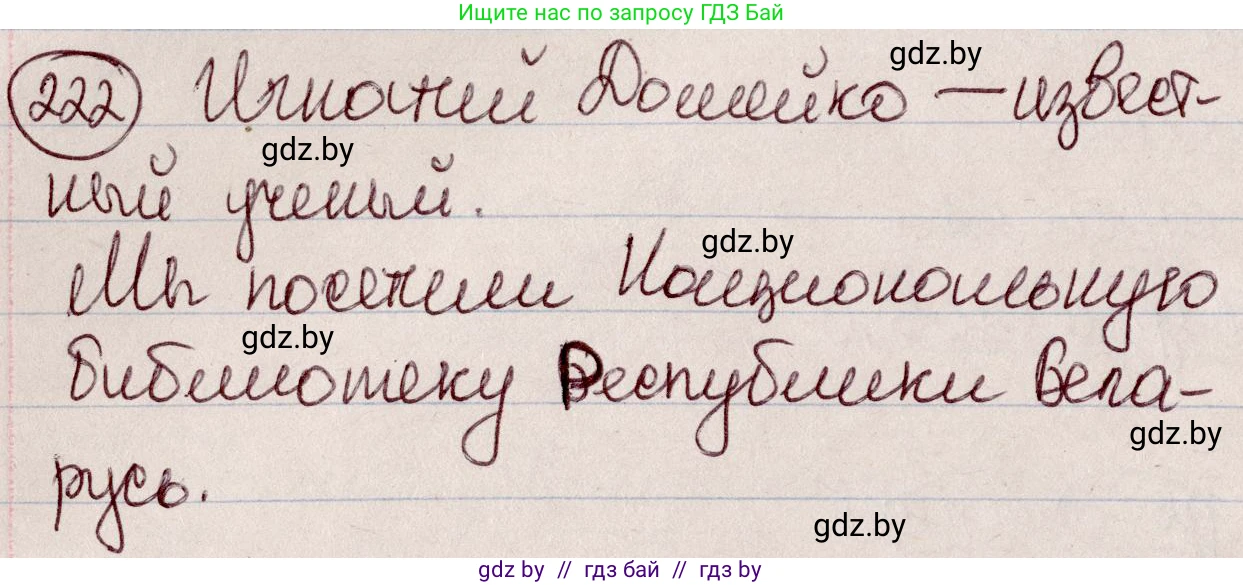 Ищите нас по запросу ГДЗ Бай
222 Игнатий Домейко — извест-
gdz.by
gdz.by
ный ученый.
gdz.by
Мы посетили Национальную
gdz.by
библиотеку Республики Бела-
gdz.by
русь.
gdz.by
gdz by // гдз бай // гдз by